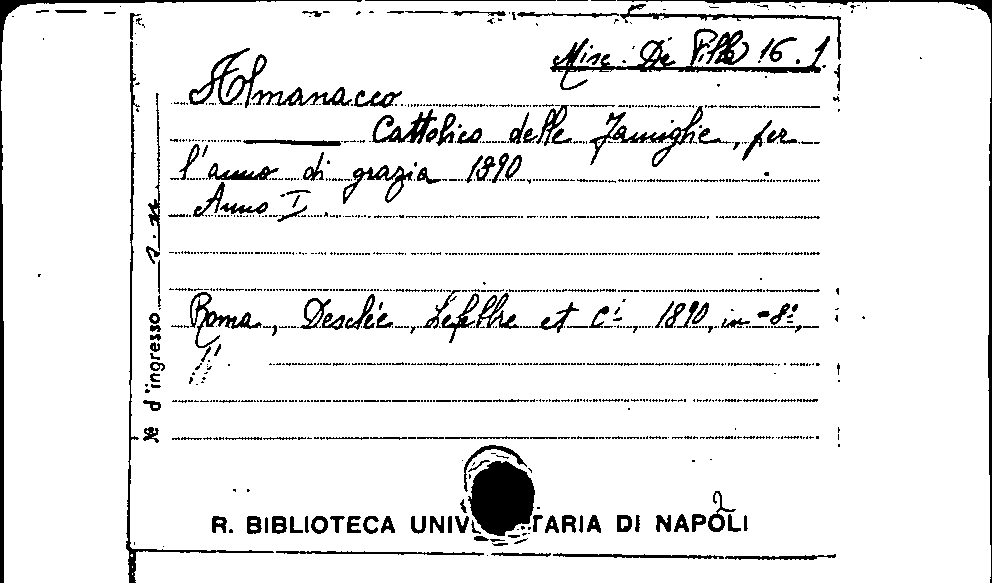 Misc. De Pilla 16. 1
Almanacco
Cattolico delle Famiglie, per
l'anno di grazia 1890.
Anno I.
Roma, Desclée, Lefebbre et Cⁱ, 1890, in-8º,
№ d'ingresso
2
R. BIBLIOTECA UNIV TARIA DI NAPOLI